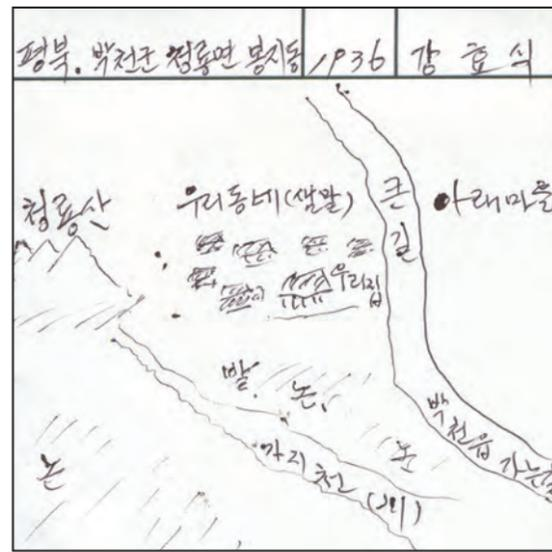 평북. 박천군 청룡면 봉지동 1936 강효식
청룡산
우리동네(샘말)
큰길
아래마을
우리집
밭. 논.
논
논
가지천(개)
박천읍 가는길